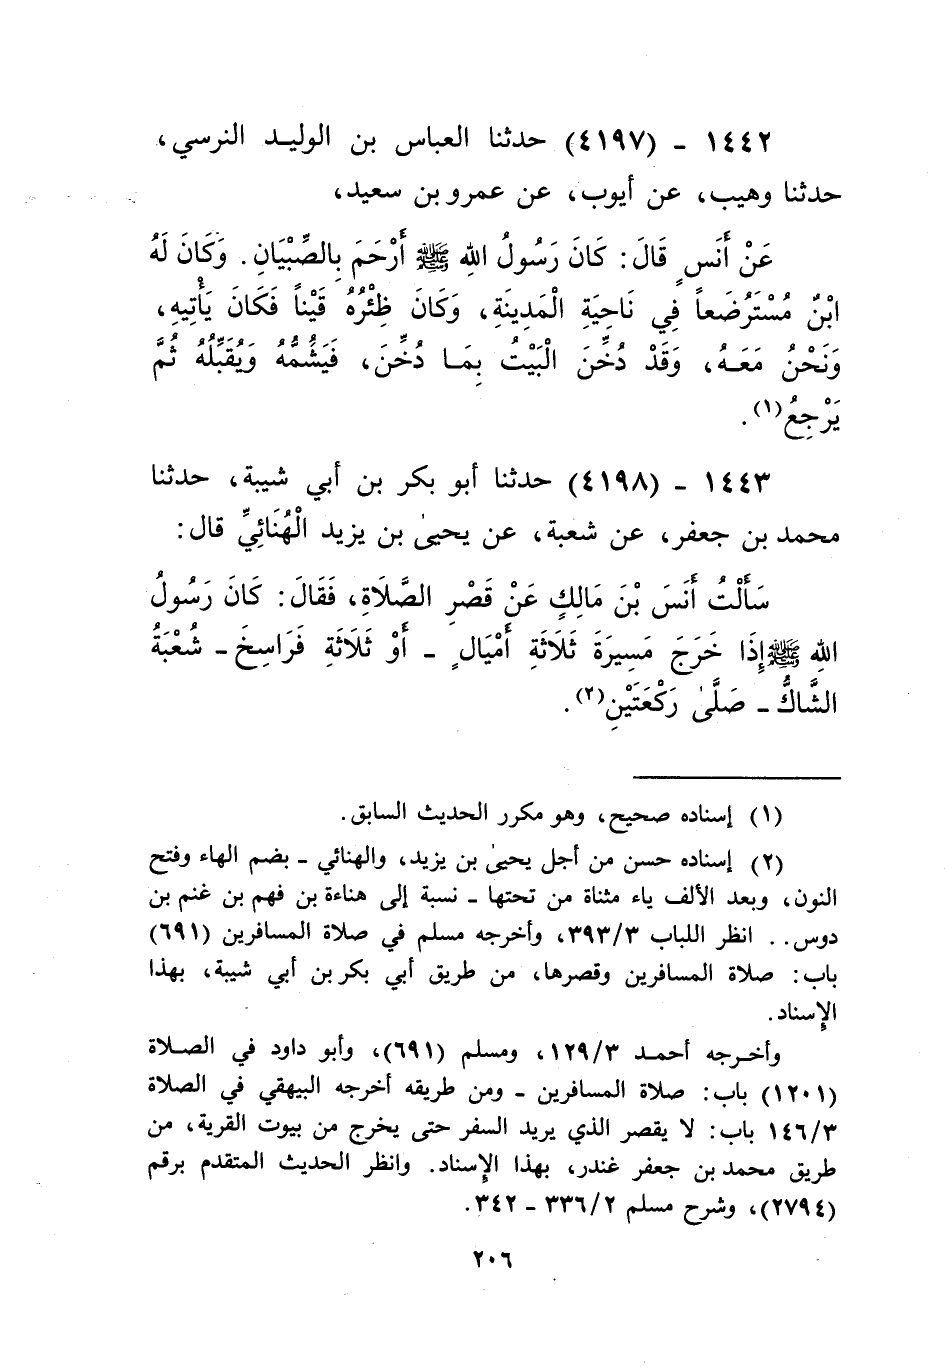 ١٤٤٢ ـ (٤١٩٧) حدثنا العباس بن الوليد النرسي،
حدثنا وهيب، عن أيوب، عن عمرو بن سعيد،
عَنْ أَنَسٍ قَالَ: كَانَ رَسُولُ اللهِ ﷺ أَرْحَمَ بِالصِّبْيَانِ. وَكَانَ لَهُ
ابْنٌ مُسْتَرْضَعاً فِي نَاحِيَةِ الْمَدِينَةِ، وَكَانَ ظِئْرُهُ قَيْناً فَكَانَ يَأْتِيهِ،
وَنَحْنُ مَعَهُ، وَقَدْ دُخِّنَ الْبَيْتُ بِمَا دُخِّنَ، فَيَشُمُّهُ وَيُقَبِّلُهُ ثُمَّ
يَرْجِعُ(١).
١٤٤٣ ـ (٤١٩٨) حدثنا أبو بكر بن أبي شيبة، حدثنا
محمد بن جعفر، عن شعبة، عن يحيىٰ بن يزيد الْهُنَائِيِّ قال:
سَأَلْتُ أَنَسَ بْنَ مَالِكٍ عَنْ قَصْرِ الصَّلَاةِ، فَقَالَ: كَانَ رَسُولُ
اللهِ ﷺ إِذَا خَرَجَ مَسِيرَةَ ثَلَاثَةِ أَمْيَالٍ ـ أَوْ ثَلَاثَةِ فَرَاسِخَ ـ شُعْبَةُ
الشَّاكُّ ـ صَلَّىٰ رَكْعَتَيْنِ(٢).
(١) إسناده صحيح، وهو مكرر الحديث السابق.
(٢) إسناده حسن من أجل يحيىٰ بن يزيد، والهنائي ـ بضم الهاء وفتح
النون، وبعد الألف ياء مثناة من تحتها ـ نسبة إلى هناءة بن فهم بن غنم بن
دوس.. انظر اللباب ٣٩٣/٣، وأخرجه مسلم في صلاة المسافرين (٦٩١)
باب: صلاة المسافرين وقصرها، من طريق أبي بكر بن أبي شيبة، بهذا
الإسناد.
وأخرجه أحمد ١٢٩/٣، ومسلم (٦٩١)، وأبو داود في الصلاة
(١٢٠١) باب: صلاة المسافرين ـ ومن طريقه أخرجه البيهقي في الصلاة
١٤٦/٣ باب: لا يقصر الذي يريد السفر حتى يخرج من بيوت القرية، من
طريق محمد بن جعفر غندر، بهذا الإسناد. وانظر الحديث المتقدم برقم
(٢٧٩٤)، وشرح مسلم ٣٣٦/٢ ـ ٣٤٢.
٢٠٦